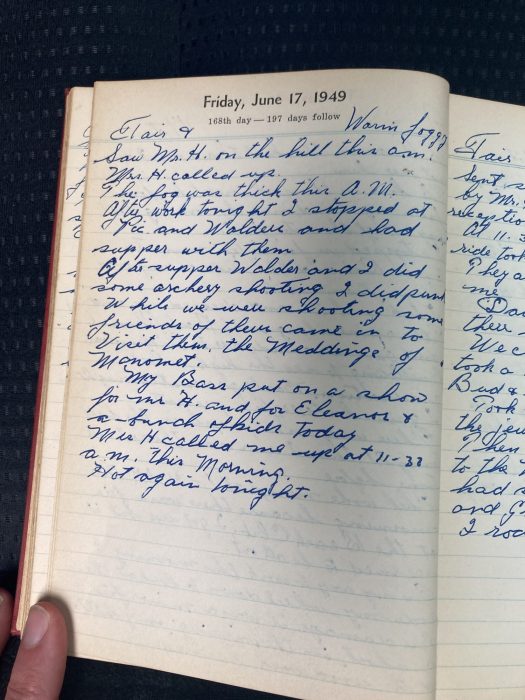 Friday, June 17, 1949
168th day — 197 days follow
Fair & Warm foggy
Saw Mr. H. on the hill this am.
Mrs. H. called up.
The fog was thick this A.M.
After work tonight I stopped at
and Walden and had
supper with them
After supper Walder and I did
some archery shooting I did
While we were shooting some
friends of theirs came in to
Visit them. the Meddings of
Manomet.
My Bass put on a show
for Mr H. and for Eleanor &
a bunch of kids today
Mrs H called me up at 11-30
a m. this Morning.
Hot again tonight.
Fair
Sept
by Mr.
reception
At 11-3
ride took
They a
me
Da
there
We c
took a
Bud &
Took
the jew
Then
to the
had
and G
I ro